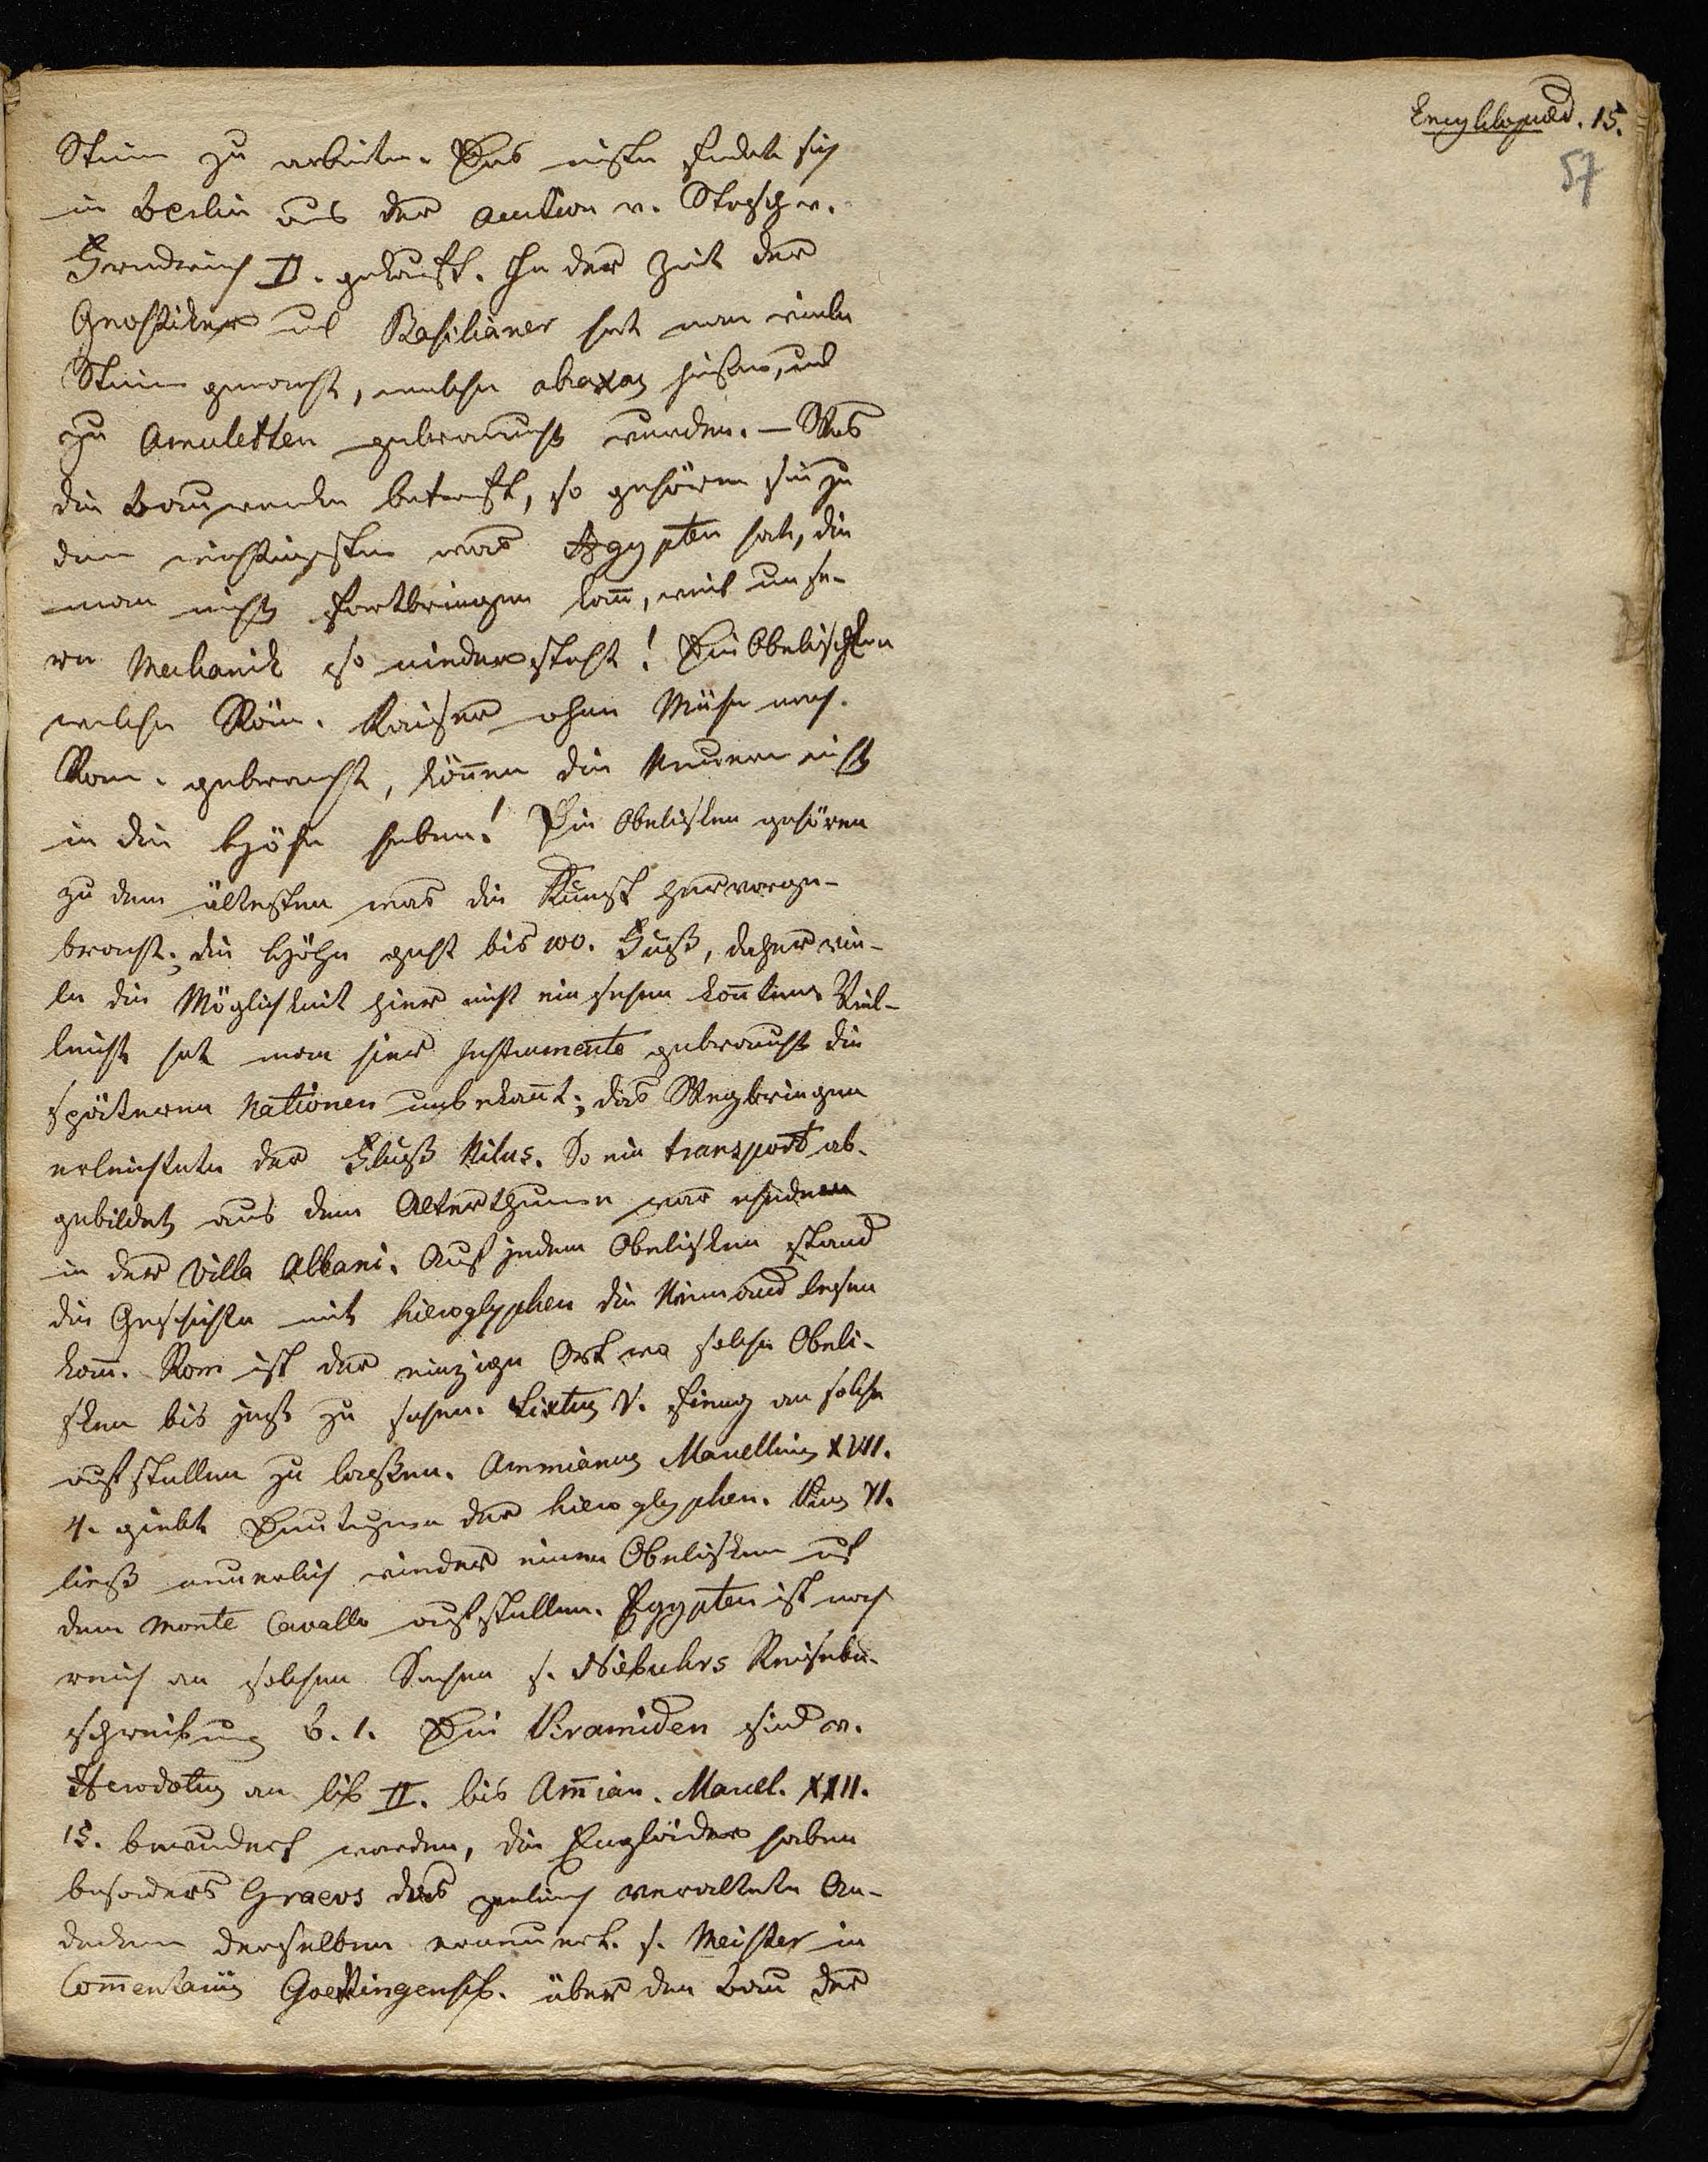 Encyklopaed. 15.
57
Steine zu arbeiten. Das meiste findet sich
in Berlin aus der auction v. Stosch v.
Friedrich II. gekauft. In der Zeit der
Gnostiker und Basilianer hat man viele
Steine gemacht, welche abraxas hießen, und
zu Amuletten gebraucht wurden. – Was
die Bauwerke betrift, so gehören sie zu
dem wichtigsten was Ägypten hat, die
man nicht fortbringen kañ, weil unse-
re Mechanik so nieder steht! Die Obelisken
welche Röm. Kaiser ohne Mühe nach
Rom gebracht, köñen die Neuern nicht
in die Höhe heben! Die Obelisken gehören
zu dem ältesten was die Kunst hervorge-
bracht; die Höhe geht bis 100. Fuß, daher vie-
le die Möglichkeit hier nicht einsehen koñten. Viel-
leicht hat man hier Instrumente gebraucht die
späteren Nationen unbekañt; das Wegbringen
erleichtete der Fluß Nilus. So ein transport ab-
gebildet aus dem Alterthume war
in der Villa Albani. Auf jedem Obelisken stand
die Geschichte mit hieroglyphen die Niemand lesen
kañ. Rom ist der einzige Ort wo solche Obeli-
sken bis jezt zu sehen. Sixtus V. fieng an solche
aufstellen zu laßen. Ammianus Marcellinus XVII.
4. giebt Deutugen der hieroglyphen. Pius VI.
ließ neuerlich wieder einen Obelisken auf
dem Monte Cavallo aufstellen. Egypten ist noch
reich an solchen Sachen s. Niebuhrs Reisebe-
schreibung B. 1. Die Piramiden sind v.
Herodotus an lib II. bis Am̃ian. Marcel. XXII.
15. bewundert worden, die Engläider haben
besonders Graevs das gänlich veraltete An-
denken derselben erneuert. s. Meister in
Com̃entariis Goettingensib. über den Bau der